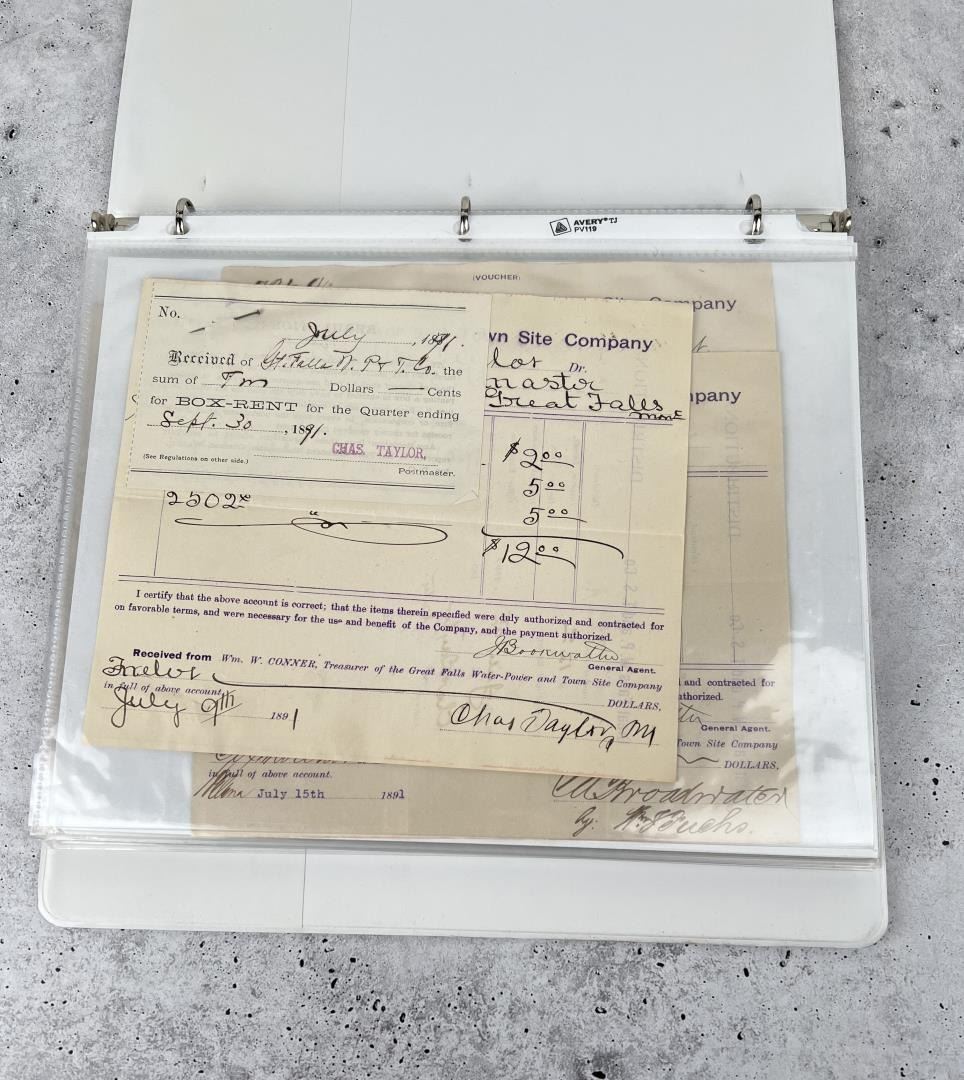 AVERY® TJ
PV119
(VOUCHER)
Company
No.
July , 1891.
Received of Gt. Falls W. P & T. Co. the
sum of Two Dollars — Cents
for BOX-RENT for the Quarter ending
Sept. 30 , 1891.
CHAS. TAYLOR,
(See Regulations on other side.)
Postmaster.
wn Site Company
lor Dr.
master
Great Falls
Mont
mpany
$2.00
5.00
5.00
$12.00
2502
I certify that the above account is correct; that the items therein specified were duly authorized and contracted for
on favorable terms, and were necessary for the use and benefit of the Company, and the payment authorized.
J Bookwalter
General Agent.
Received from Wm. W. CONNER, Treasurer of the Great Falls Water-Power and Town Site Company
Twelve DOLLARS,
in full of above account.
July 9th 1891
Chas Taylor PM
and contracted for
thorized.
General Agent.
Town Site Company
DOLLARS,
in full of above account.
July 15th 1891
CA Broadwater
by.